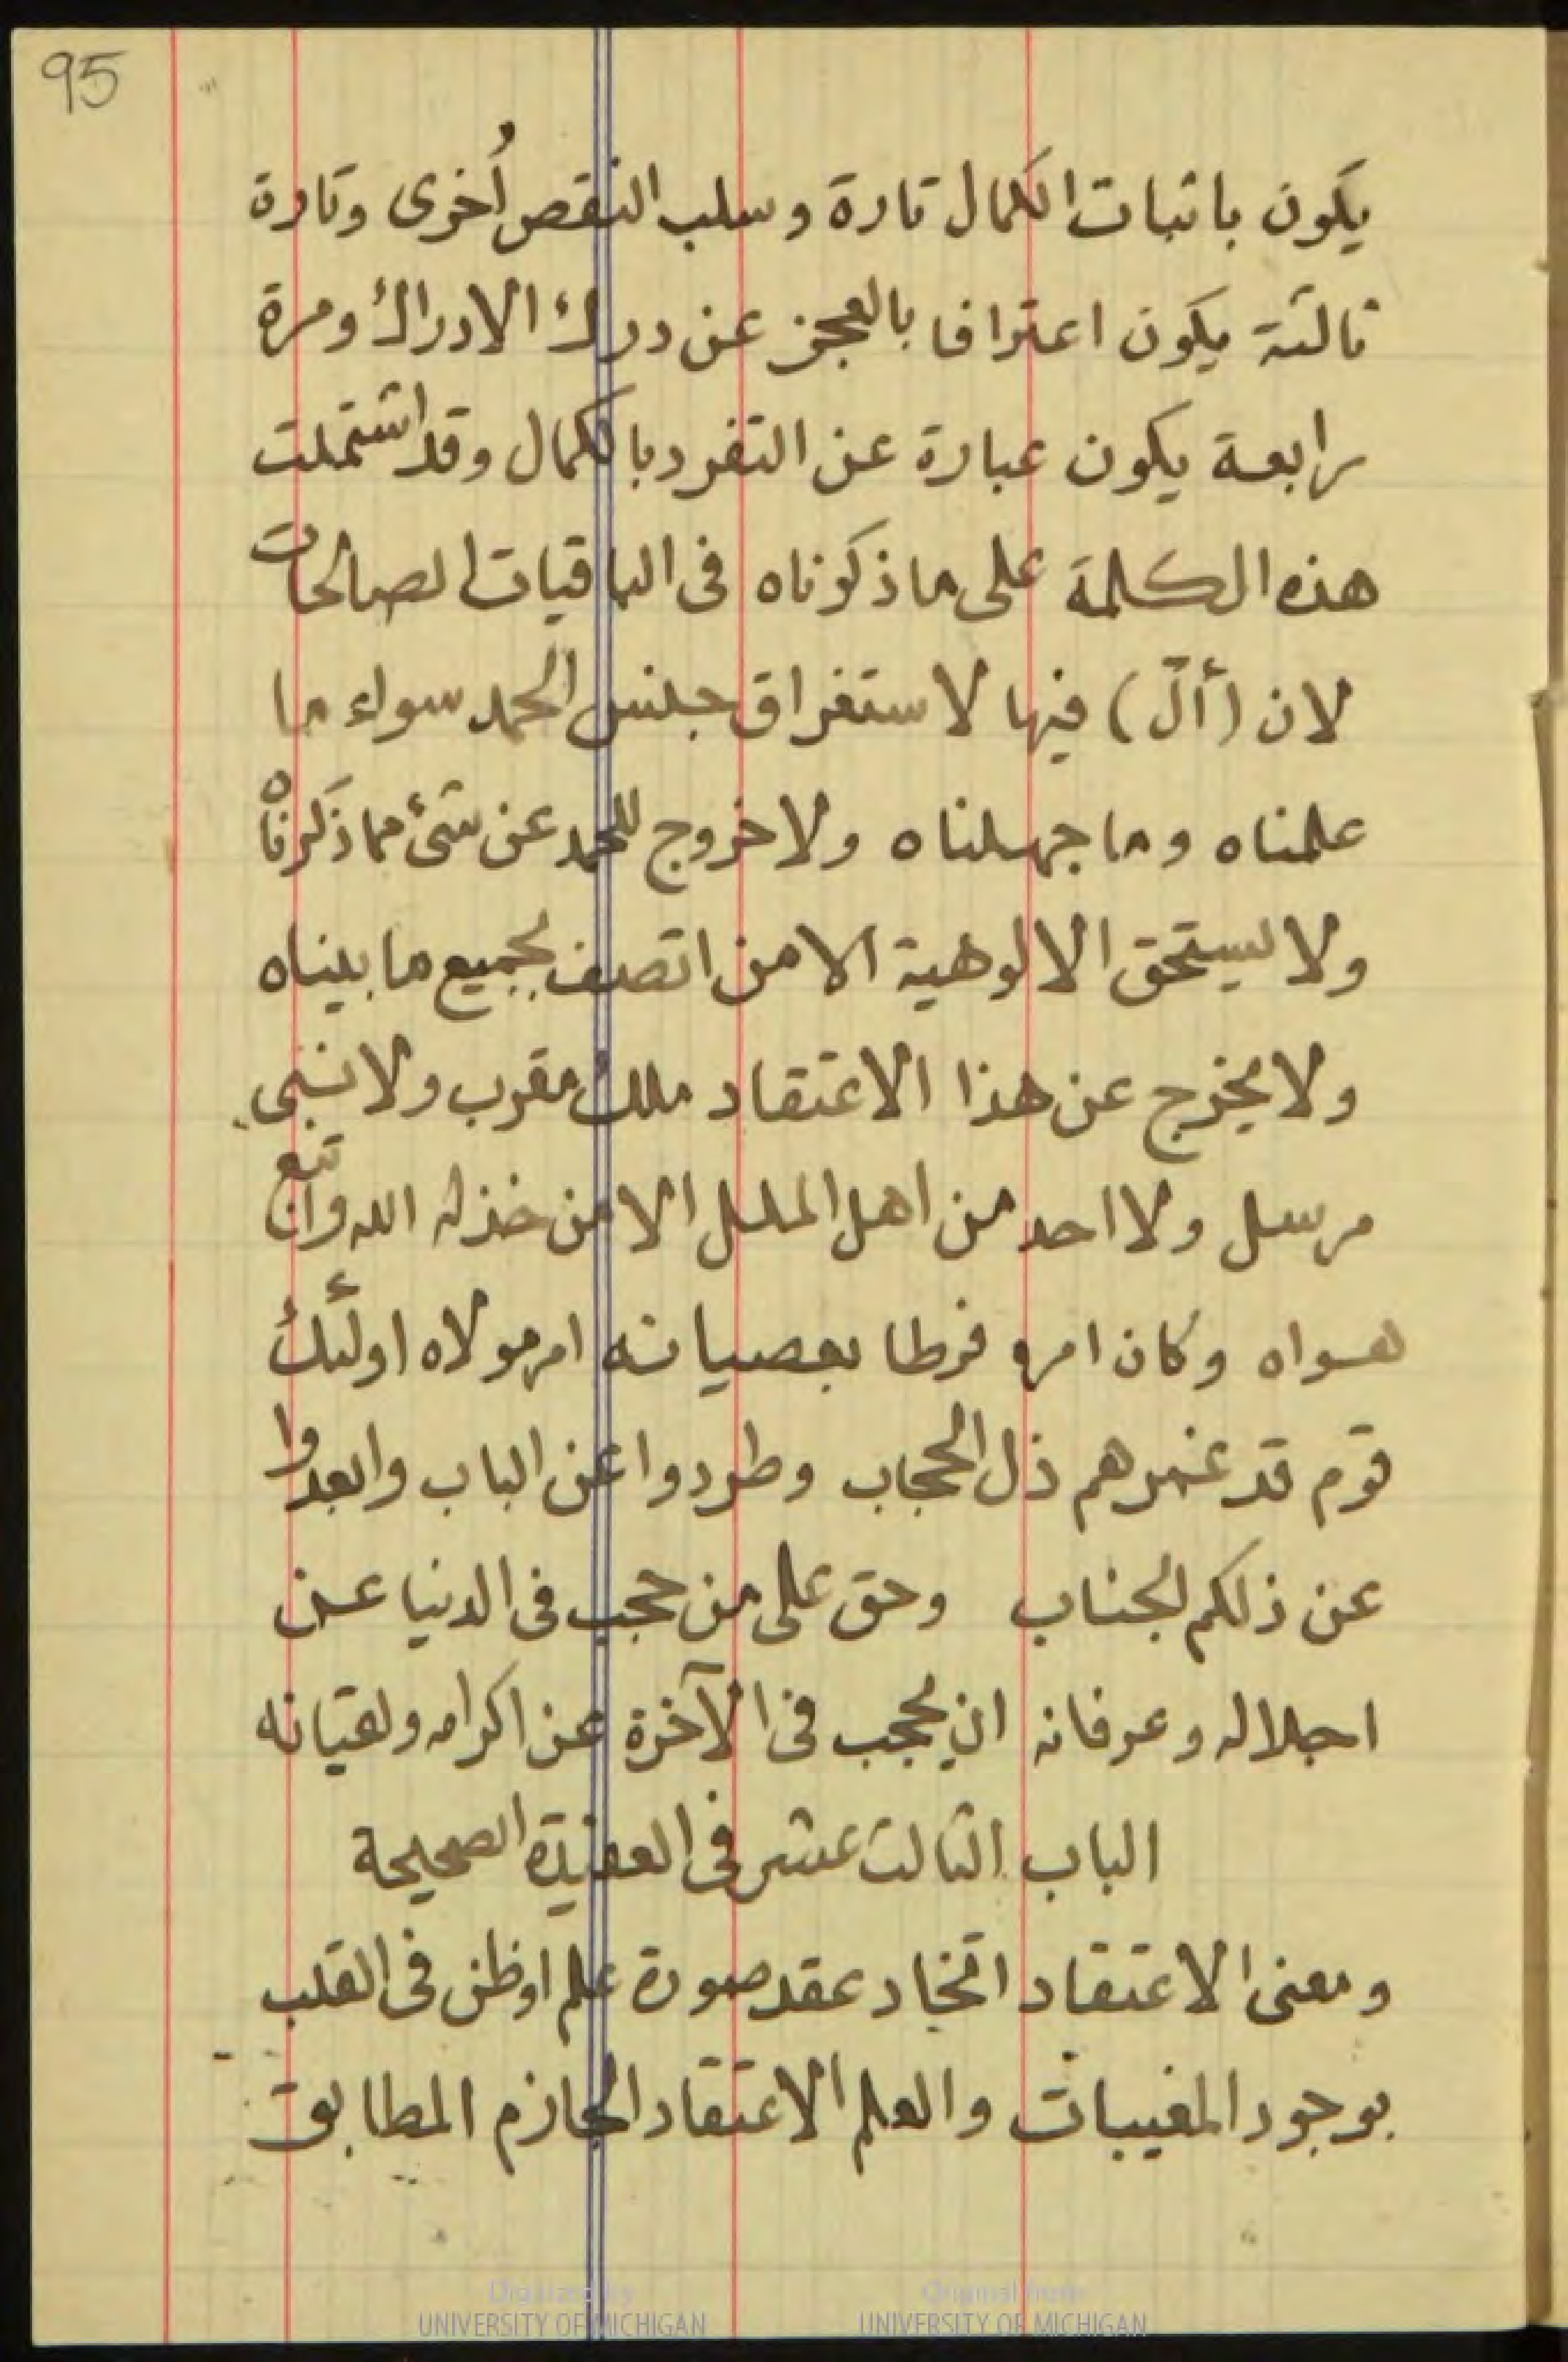 95
يكون باثبات الكمال تارة وسلب النقص أُخرى وتارة
ثالثة يكون اعترافا بالعجز عن درك الادراك ومرة
رابعة يكون عبارة عن التفرد بالكمال وقد اشتملت
هذه الكلمة على ما ذكرناه فى الباقيات الصالحات
لان (أل) فيها لاستغراق جنس الحمد سواء ما
علمناه وما جهلناه ولا خروج للحمد عن شئ مما ذكرناه
ولا يستحق الالوهية الا من اتصف بجميع ما بيناه
ولا يخرج عن هذا الاعتقاد ملك مقرب ولا نبى
مرسل ولا احد من اهل الملل الا من خذله الله واتبع
هواه وكان امره فرطا بعصيانه امر مولاه اولئك
قوم قد غمرهم ذل الحجاب وطردوا عن الباب وابعدوا
عن ذلكم الجناب وحق على من حجب فى الدنيا عن
اجلاله وعرفانه ان يحجب فى الآخرة عن اكرامه ولقيانه
الباب الثالث عشر فى العقيدة الصحيحة
ومعنى الاعتقاد اتخاد عقد صورة علم او ظن فى القلب
بوجود المغيبات والعلم الاعتقاد الجازم المطابق
Digitized by
UNIVERSITY OF MICHIGAN
Original from
UNIVERSITY OF MICHIGAN